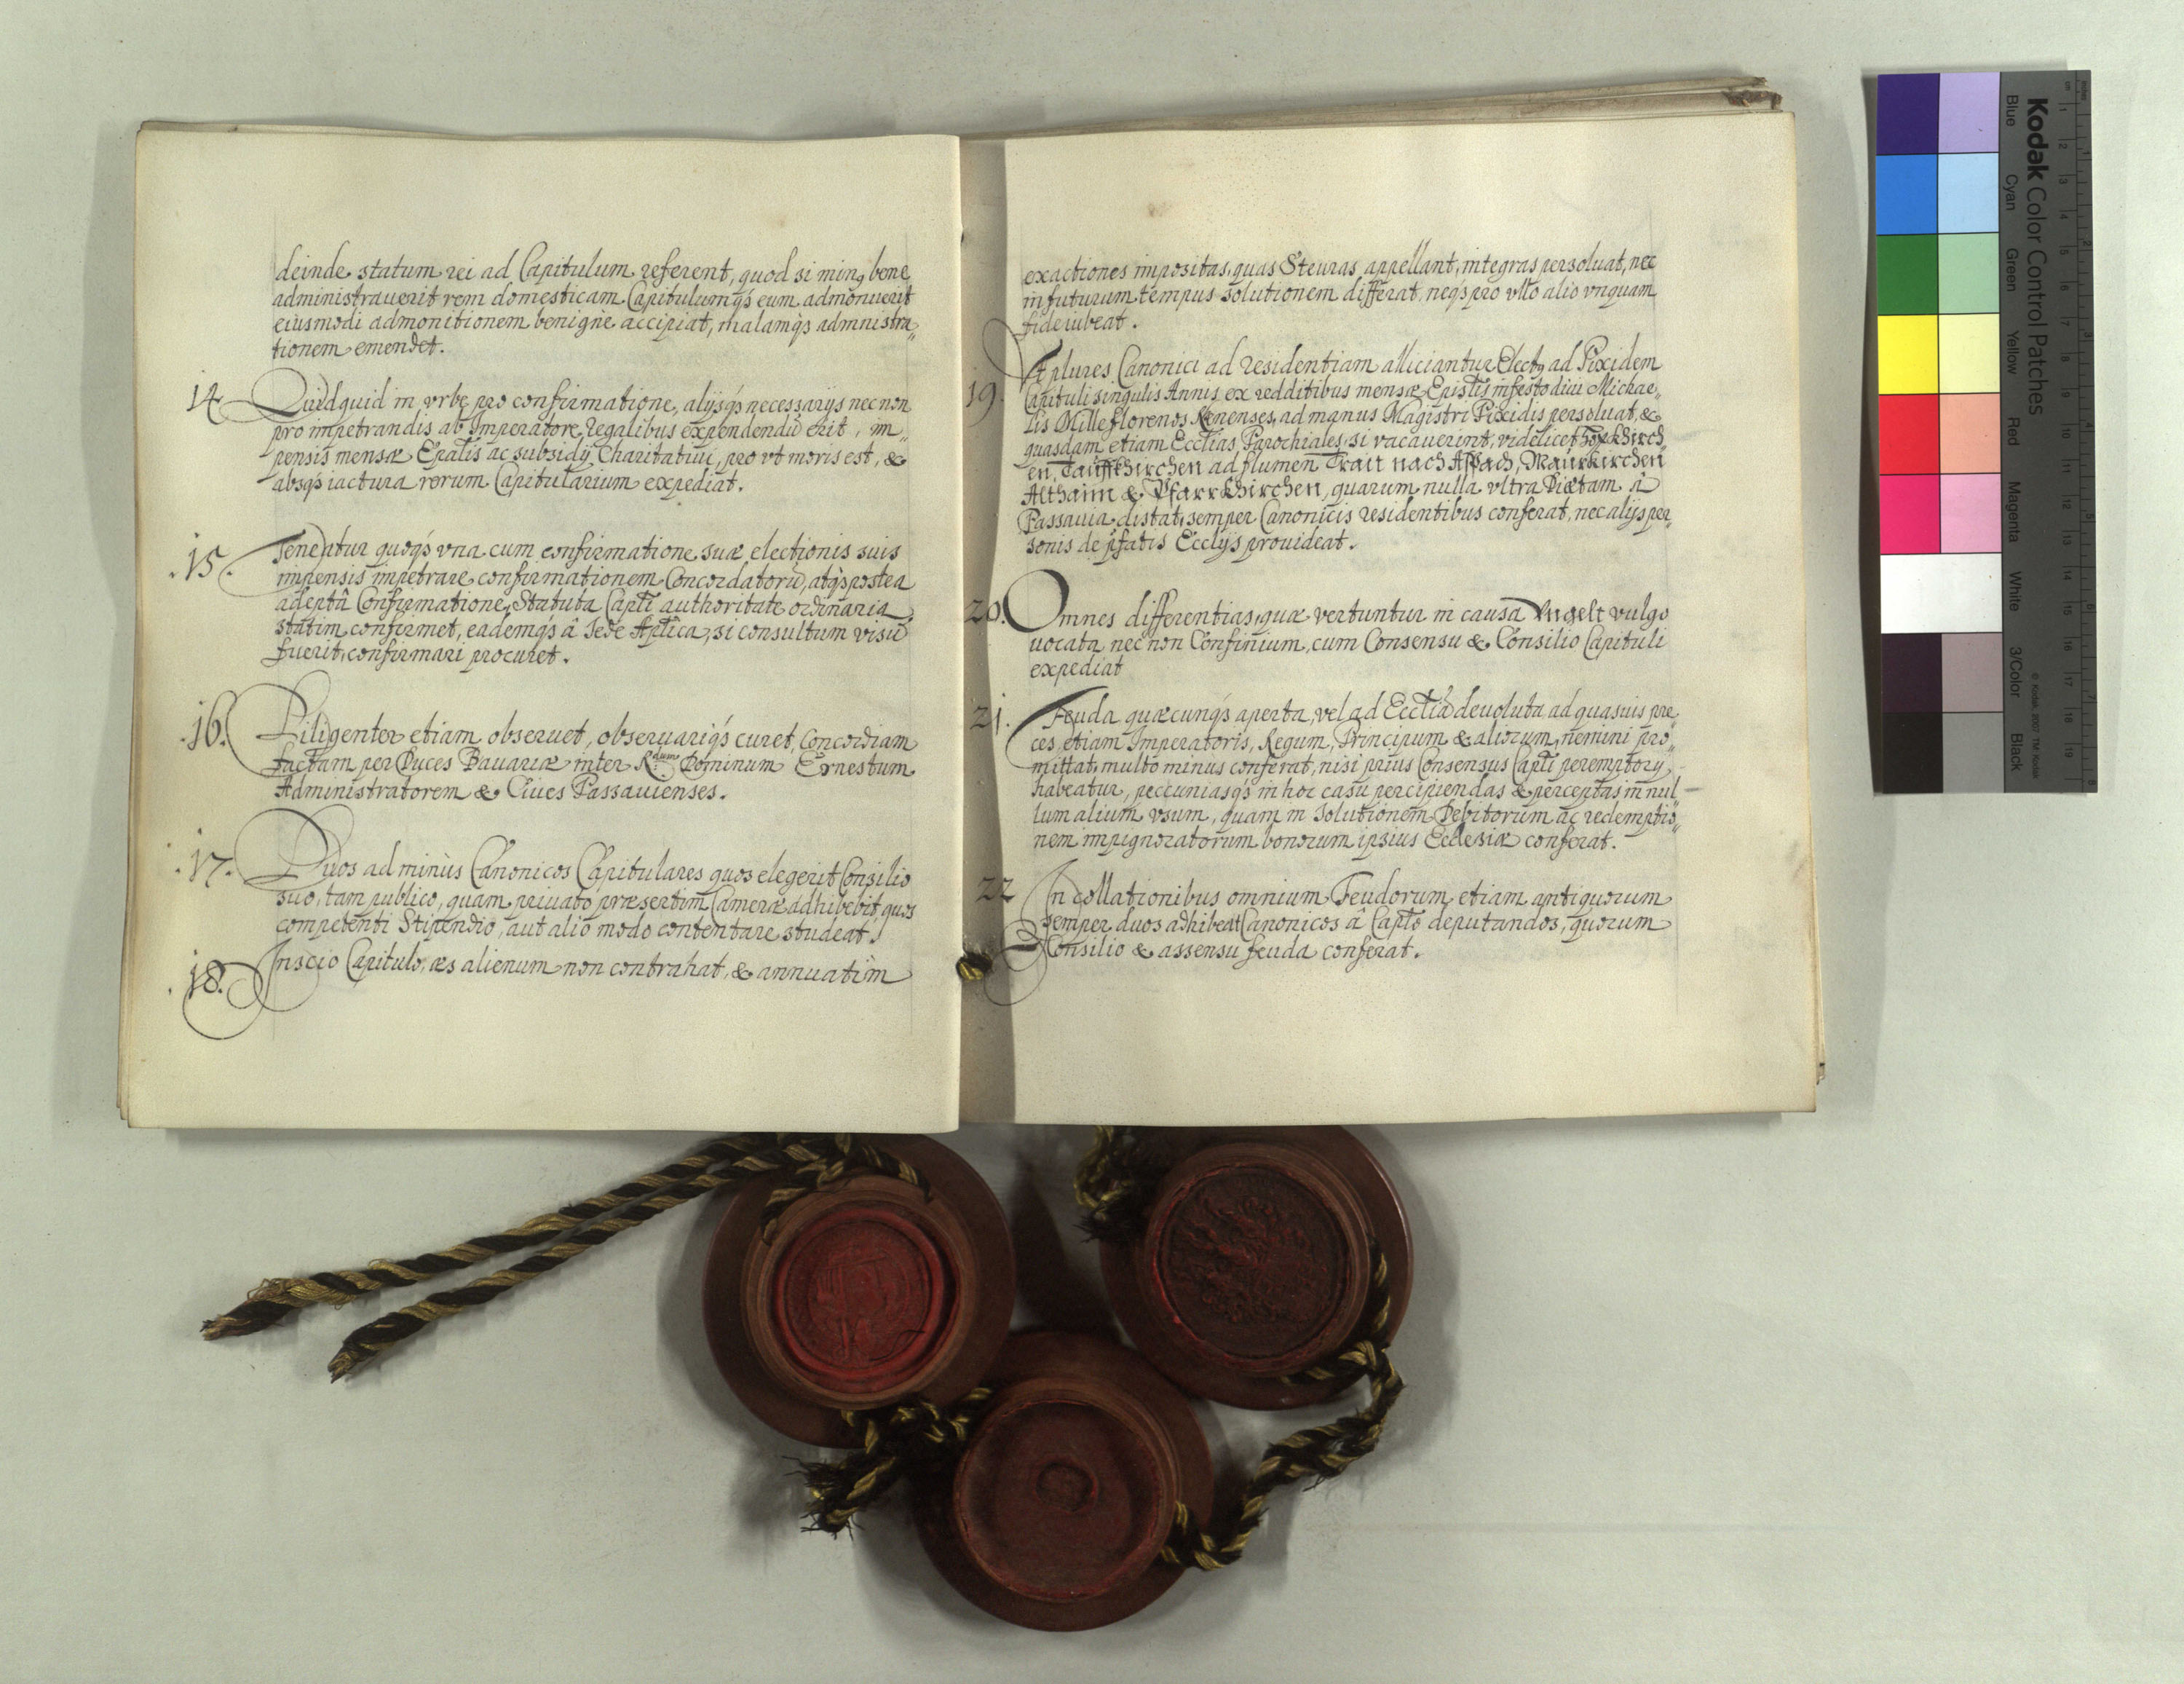 deinde statum rei ad Capitulum referent, quod si min9 bene
administrauerit rem domesticam Capitulumq́s eum admonuerit
eiusmodi admonitionem benigne accipiat, malamq́s admnistra„
tionem emendet.
14. Quidquid in vrbe pro confirmatione, alijsq́s necessarijs nec non
pro impetrandis ab Imperatore Regalibus expendendũ erit, im„
pensis mensæ Ep̃alis ac subsidij Charitatiui, pro vt moris est, &
absq́s iactura rerum Capitularium expediat.
.15. Tenentur quoq́s vna cum confirmatione suæ electionis suis
impensis impetrare confirmationem Concordatorũ, atq́s postea
adeptâ Confirmatione, Statuta Cap̃ti authoritate ordinaria
statim confirmet, eademq́s â Sede Ap̃tica, si consultum visũ
fuerit, confirmari procuret.
.16. Diligenter etiam obseruet, obseruariq́s curet, Concordiam
factam per Duces Bauariæ inter R.dum Dominum Ernestum
Administratorem & Ciues Passauienses.
.17. Duos ad minùs Canonicos Capitulares quos elegerit Consilio
suo, tam publico, quam priuato præsertim Cameræ adhibebit, quos
competenti Stipendio, aut alio modo contentare studeat.
.18. Inscio Capitulo, æs alienum non contrahat, & annuatìm
exactiones impositas, quas Steuras appellant, integras persoluat, nec
in futurum tempus solutionem differat, neq́s pro vllo alio vnquam
fideiubeat.
19. Vt plures Canonici ad residentiam alliciantur Elect9 ad Pixidem
Capituli singulis Annis ex redditibus mensæ Epis̃tis in festo diui Michae„
lis Mille florenos Renenses, ad manus Magistri Pixidis persoluat, &
quasdam etiam Ecc̃tias Parochiales, si vacauerint, videlicet
en, Tauffkhirchen ad flumen Trait nach Aspach, Maurkirchen
Althaim & Pfarrkhirchen, quarum nulla vltra Diætam â
Passauia distat, semper Canonicis residentibus conferat, nec alijs per„
sonis de p̃fatis Ecc̃lijs prouideat.
20. Omnes differentias, quæ vertuntur in causa Vngelt vulgo
uocata nec non Confinium, cum Consensu & Consilio Capituli
expediat
21. Feuda quæcunq́s aperta, vel ad Ecc̃tiã deuoluta, ad quasuis pre
ces, etiam Imperatoris, Regum, Principum & aliorum, nemini pro„
mittat, multo minus conferat, nisi prius Consensus Cap̃ti peremptory
habeatur, peccuniasq́s in hoc casu percipiendas & perceptas in nul„
lum alium vsum, quam in solutionem Debitorum ac redemptio„
nem impignoratorum bonorum ipsius Ecclesiæ conferat.
22 In collationibus omnium Feudorum etiam antiquorum
semper duos adhibeat Canonicos â Cap̃to deputandos, quorum
Consilio & assensu feuda conferat.
Kodak Color Control Patches
Blue Cyan Green Yellow Red Magenta White 3/Color Black
© Kodak, 2007 TM: Kodak